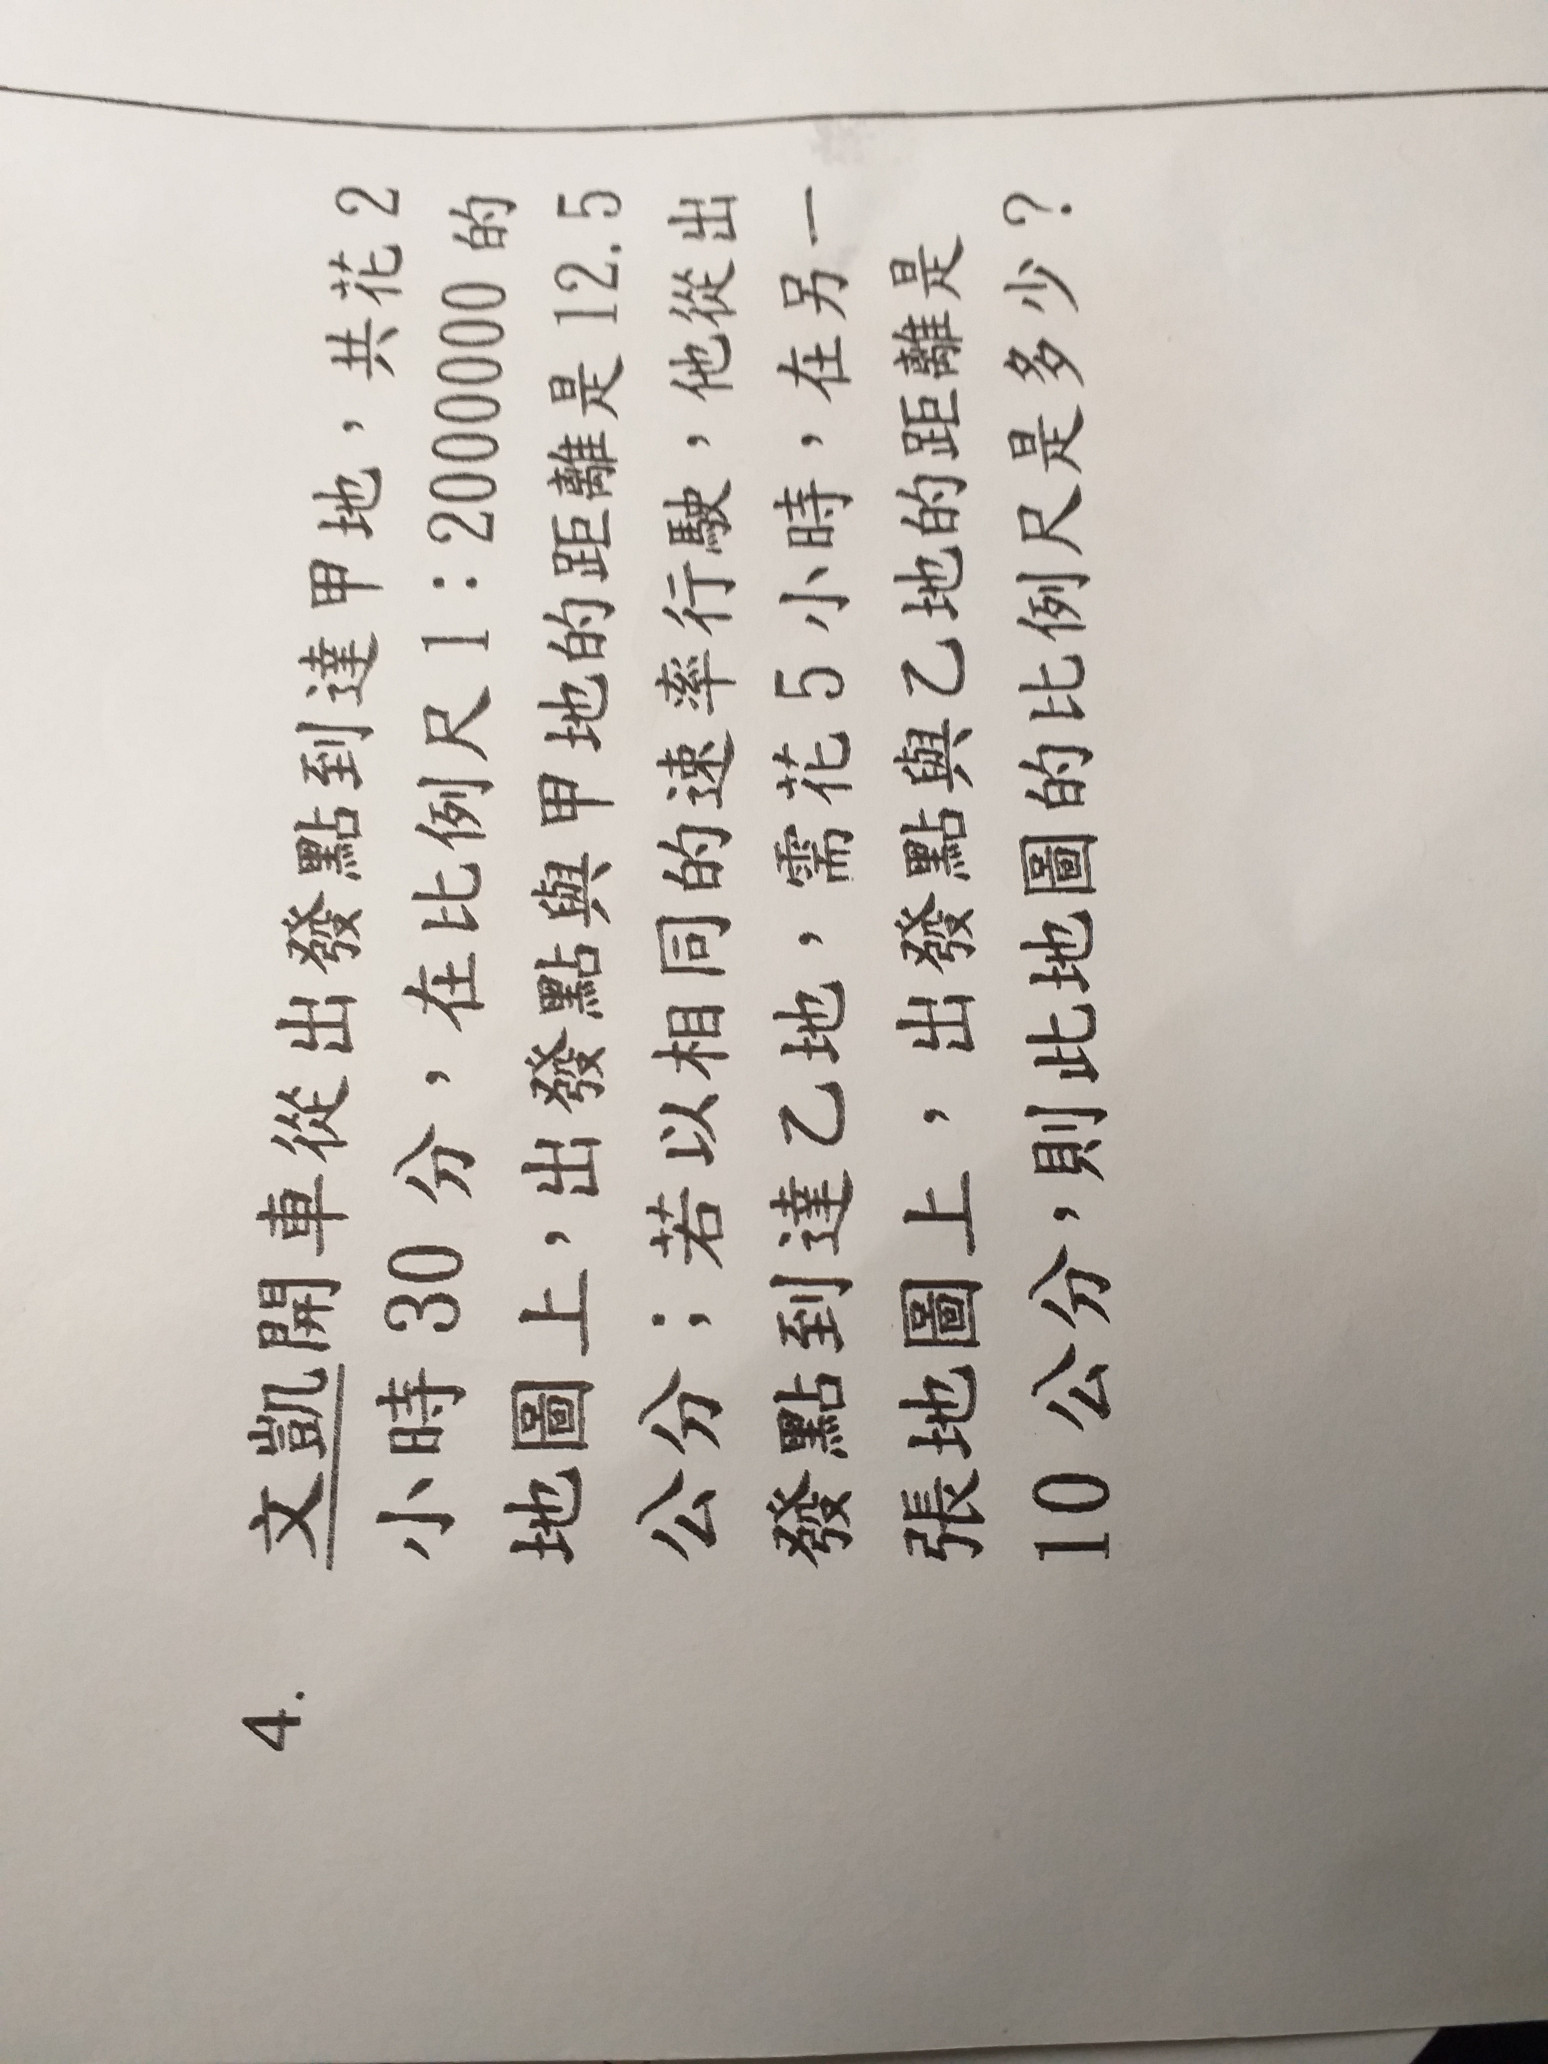 4. 文凱開車從出發點到達甲地，共花2
小時30分，在比例尺1：2000000的
地圖上，出發點與甲地的距離是12.5
公分；若以相同的速率行駛，他從出
發點到達乙地，需花5小時，在另一
張地圖上，出發點與乙地的距離是
10公分，則此地圖的比例尺是多少？